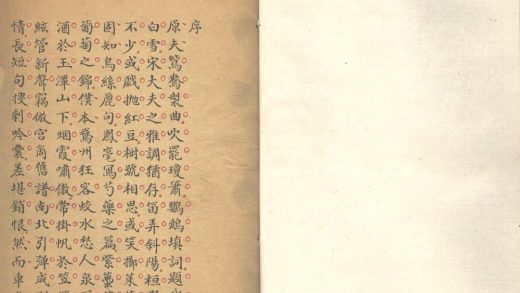 序
原夫鴛鴦製曲吹罷瓊簫鸚鵡填詞題
白雪宋大夫之雅調猶存笛弄斜陽桓
不少或戲拋紅豆樹號相思或笑擲茱
固知烏絲麗句鳳毫寫芍藥之篇紫
葡萄之錦僕本州狂客蛟水愁人泉
酒於玉潭山下烟霞嘯傲帶掛帆於笠
絃管新聲竊倣宮商舊譜南北引彈成
情長短句搜剩吟囊差堪銷恨然而車